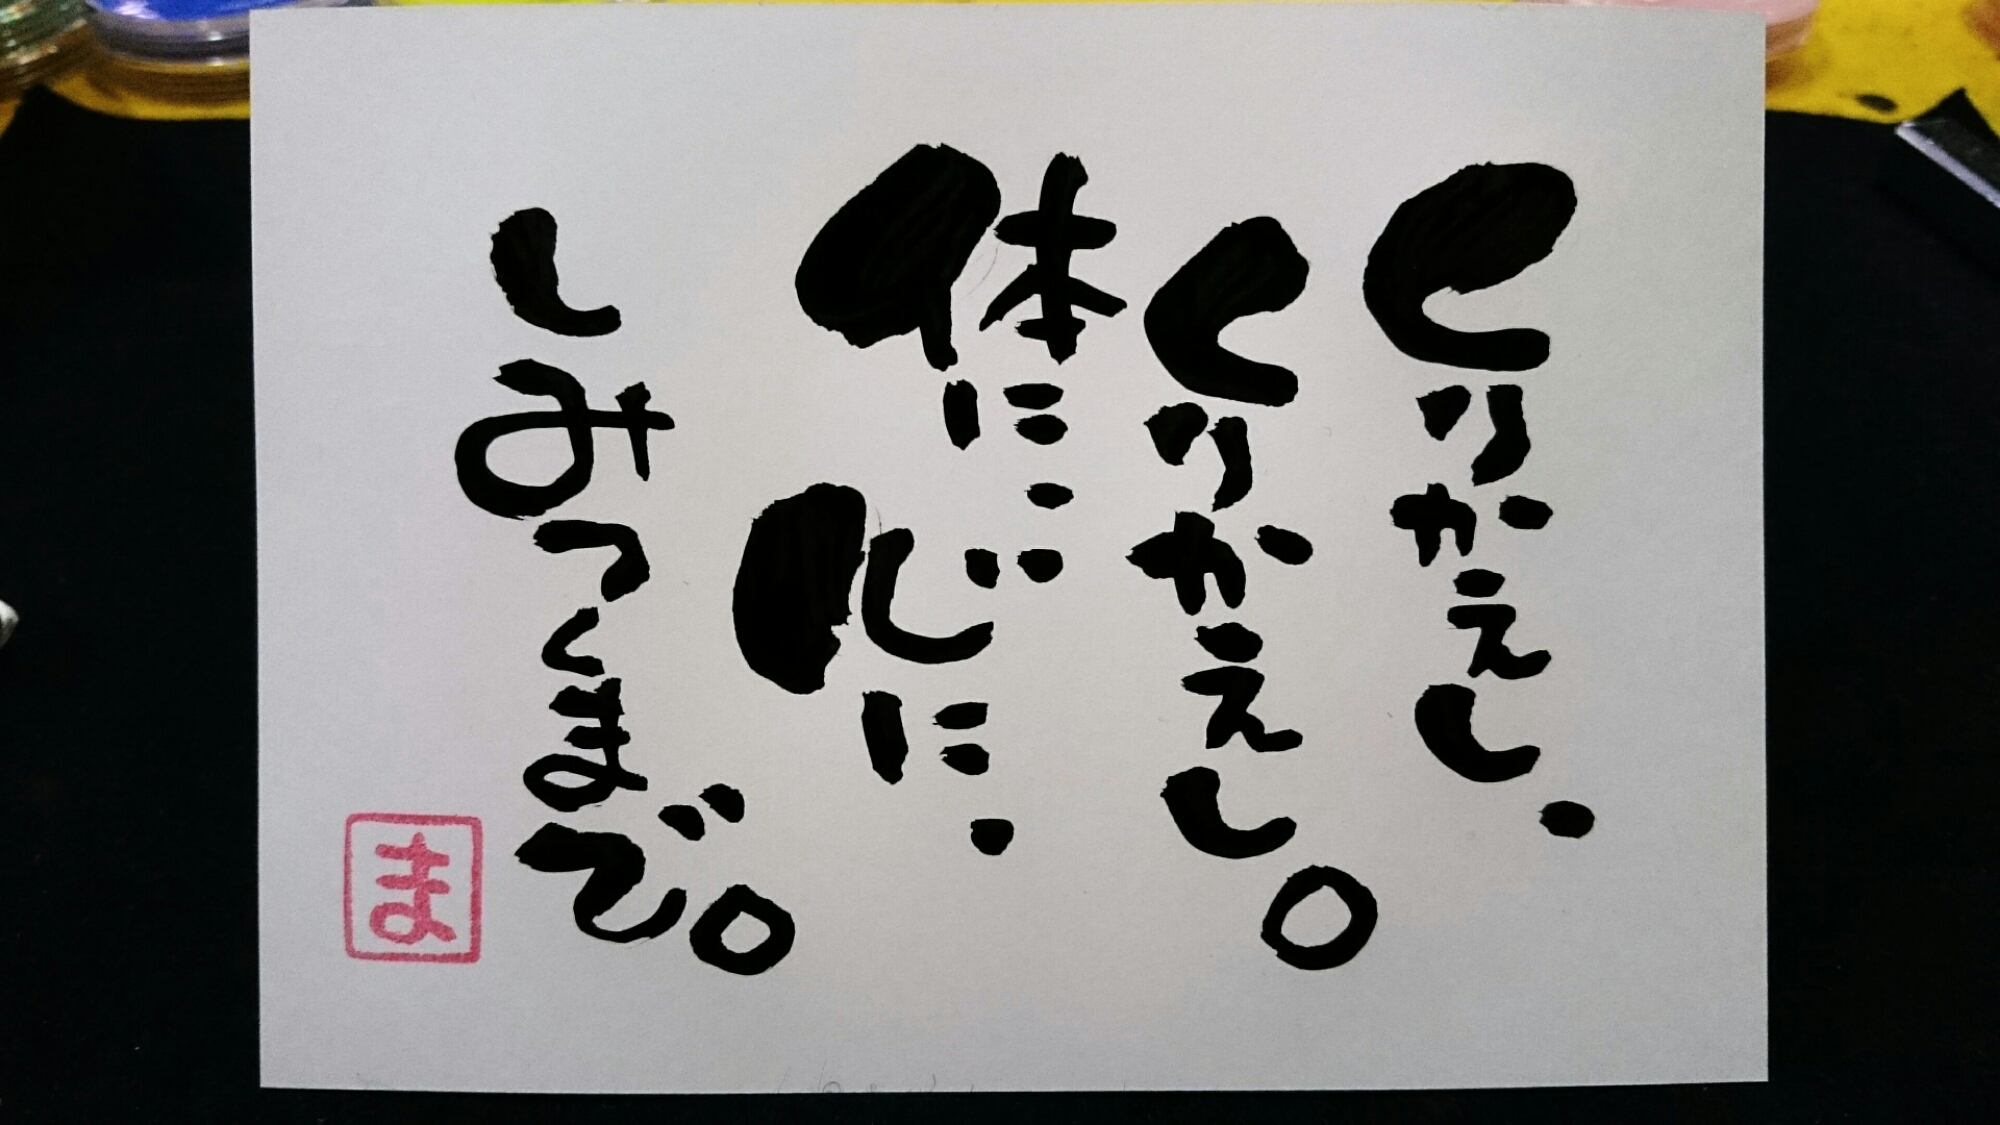 くりかえし、
くりかえし。
体に…心に、
しみつくまで。
ま